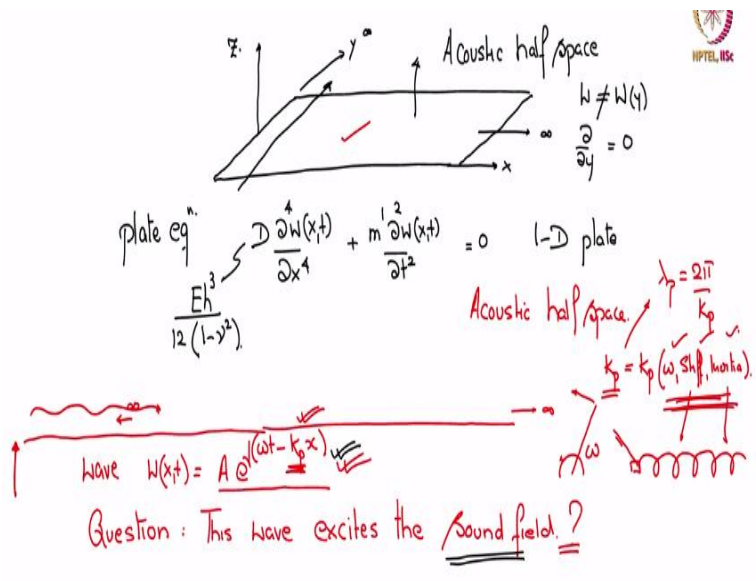 NPTEL, IISc
Z
y ∞
Acoustic half space
W ≠ W(y)
∂/∂y = 0
∞
x
plate eqⁿ. D ∂⁴w(x,t)/∂x⁴ + m' ∂²w(x,t)/∂t² = 0 1-D plate
Eh³/12(1-ν²)
Acoustic half space.
λp = 2π/kp
kp = kp(ω, Stff, Inertia).
∞
∞
ω
Wave W(x,t) = A e^j(ωt - kp x)
Question : This wave excites the sound field. ?